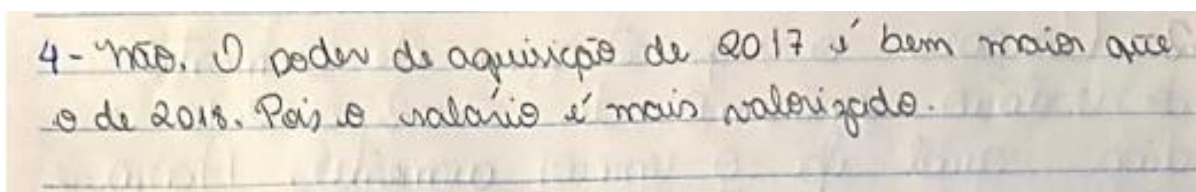 4- Não. O poder de aquisição de 2017 é bem maior que
o de 2018. Pois o salário é mais valorizado.